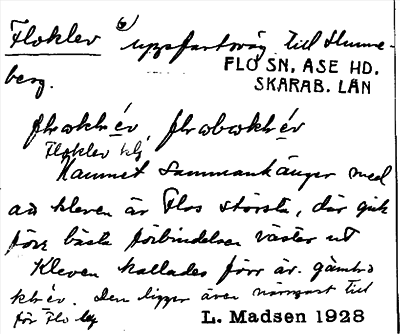 Floklev uppfartsväg till Hunne-
berg.
FLO SN, ÅSE HD.
SKARAB. LÄN
Floklev
Namnet sammanhänger med
att kleven är Flos största, där gick
förr bästa förbindelsen väster ut
Kleven kallades förr är. gamla
klev. den ligger även närmast till
för Flo by
L. Madsen 1928